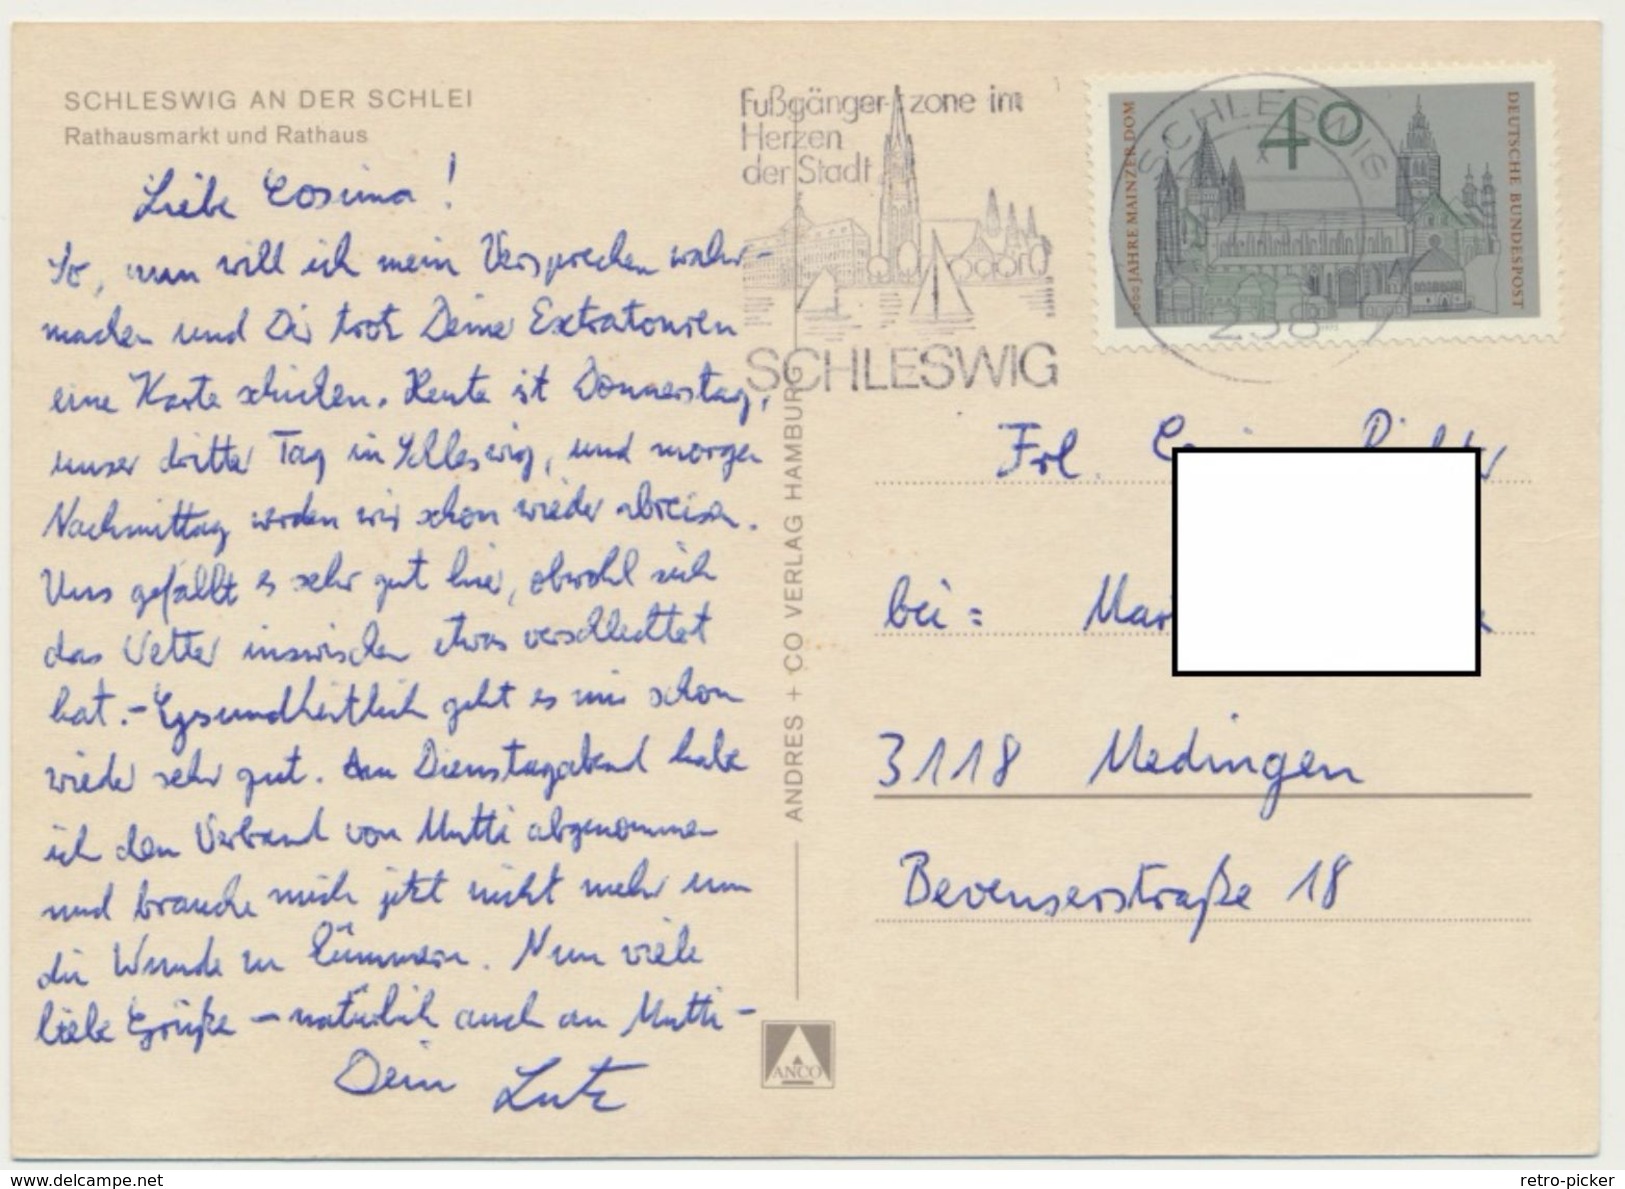 SCHLESWIG AN DER SCHLEI
Rathausmarkt und Rathaus
Liebe Cosima!
So, nun will ich mein Versprechen wahr-
machen und Dir trotz Deiner Extratouren
eine Karte schicken. Heute ist Donnerstag,
unser dritter Tag in Schleswig, und morgen
Nachmittag werden wir schon wieder abreisen.
Uns gefällt es sehr gut hier, obwohl sich
das Wetter inzwischen etwas verschlechtert
hat. - Gesundheitlich geht es mir schon
wieder sehr gut. Am Dienstagabend habe
ich den Verband von Mutti abgenommen
und brauche mich jetzt nicht mehr um
die Wunde zu kümmern. Nun viele
liebe Grüße - natürlich auch an Mutti -
Dein Lutz
Fußgängerzone im
Herzen
der Stadt
SCHLESWIG
ANDRES + CO VERLAG HAMBURG
ANCO
SCHLESWIG
238
40
1000 JAHRE MAINZER DOM
DEUTSCHE BUNDESPOST
1975
Frl.
bei:
3118 Medingen
Bevenserstraße 18
www.delcampe.net
retro-picker